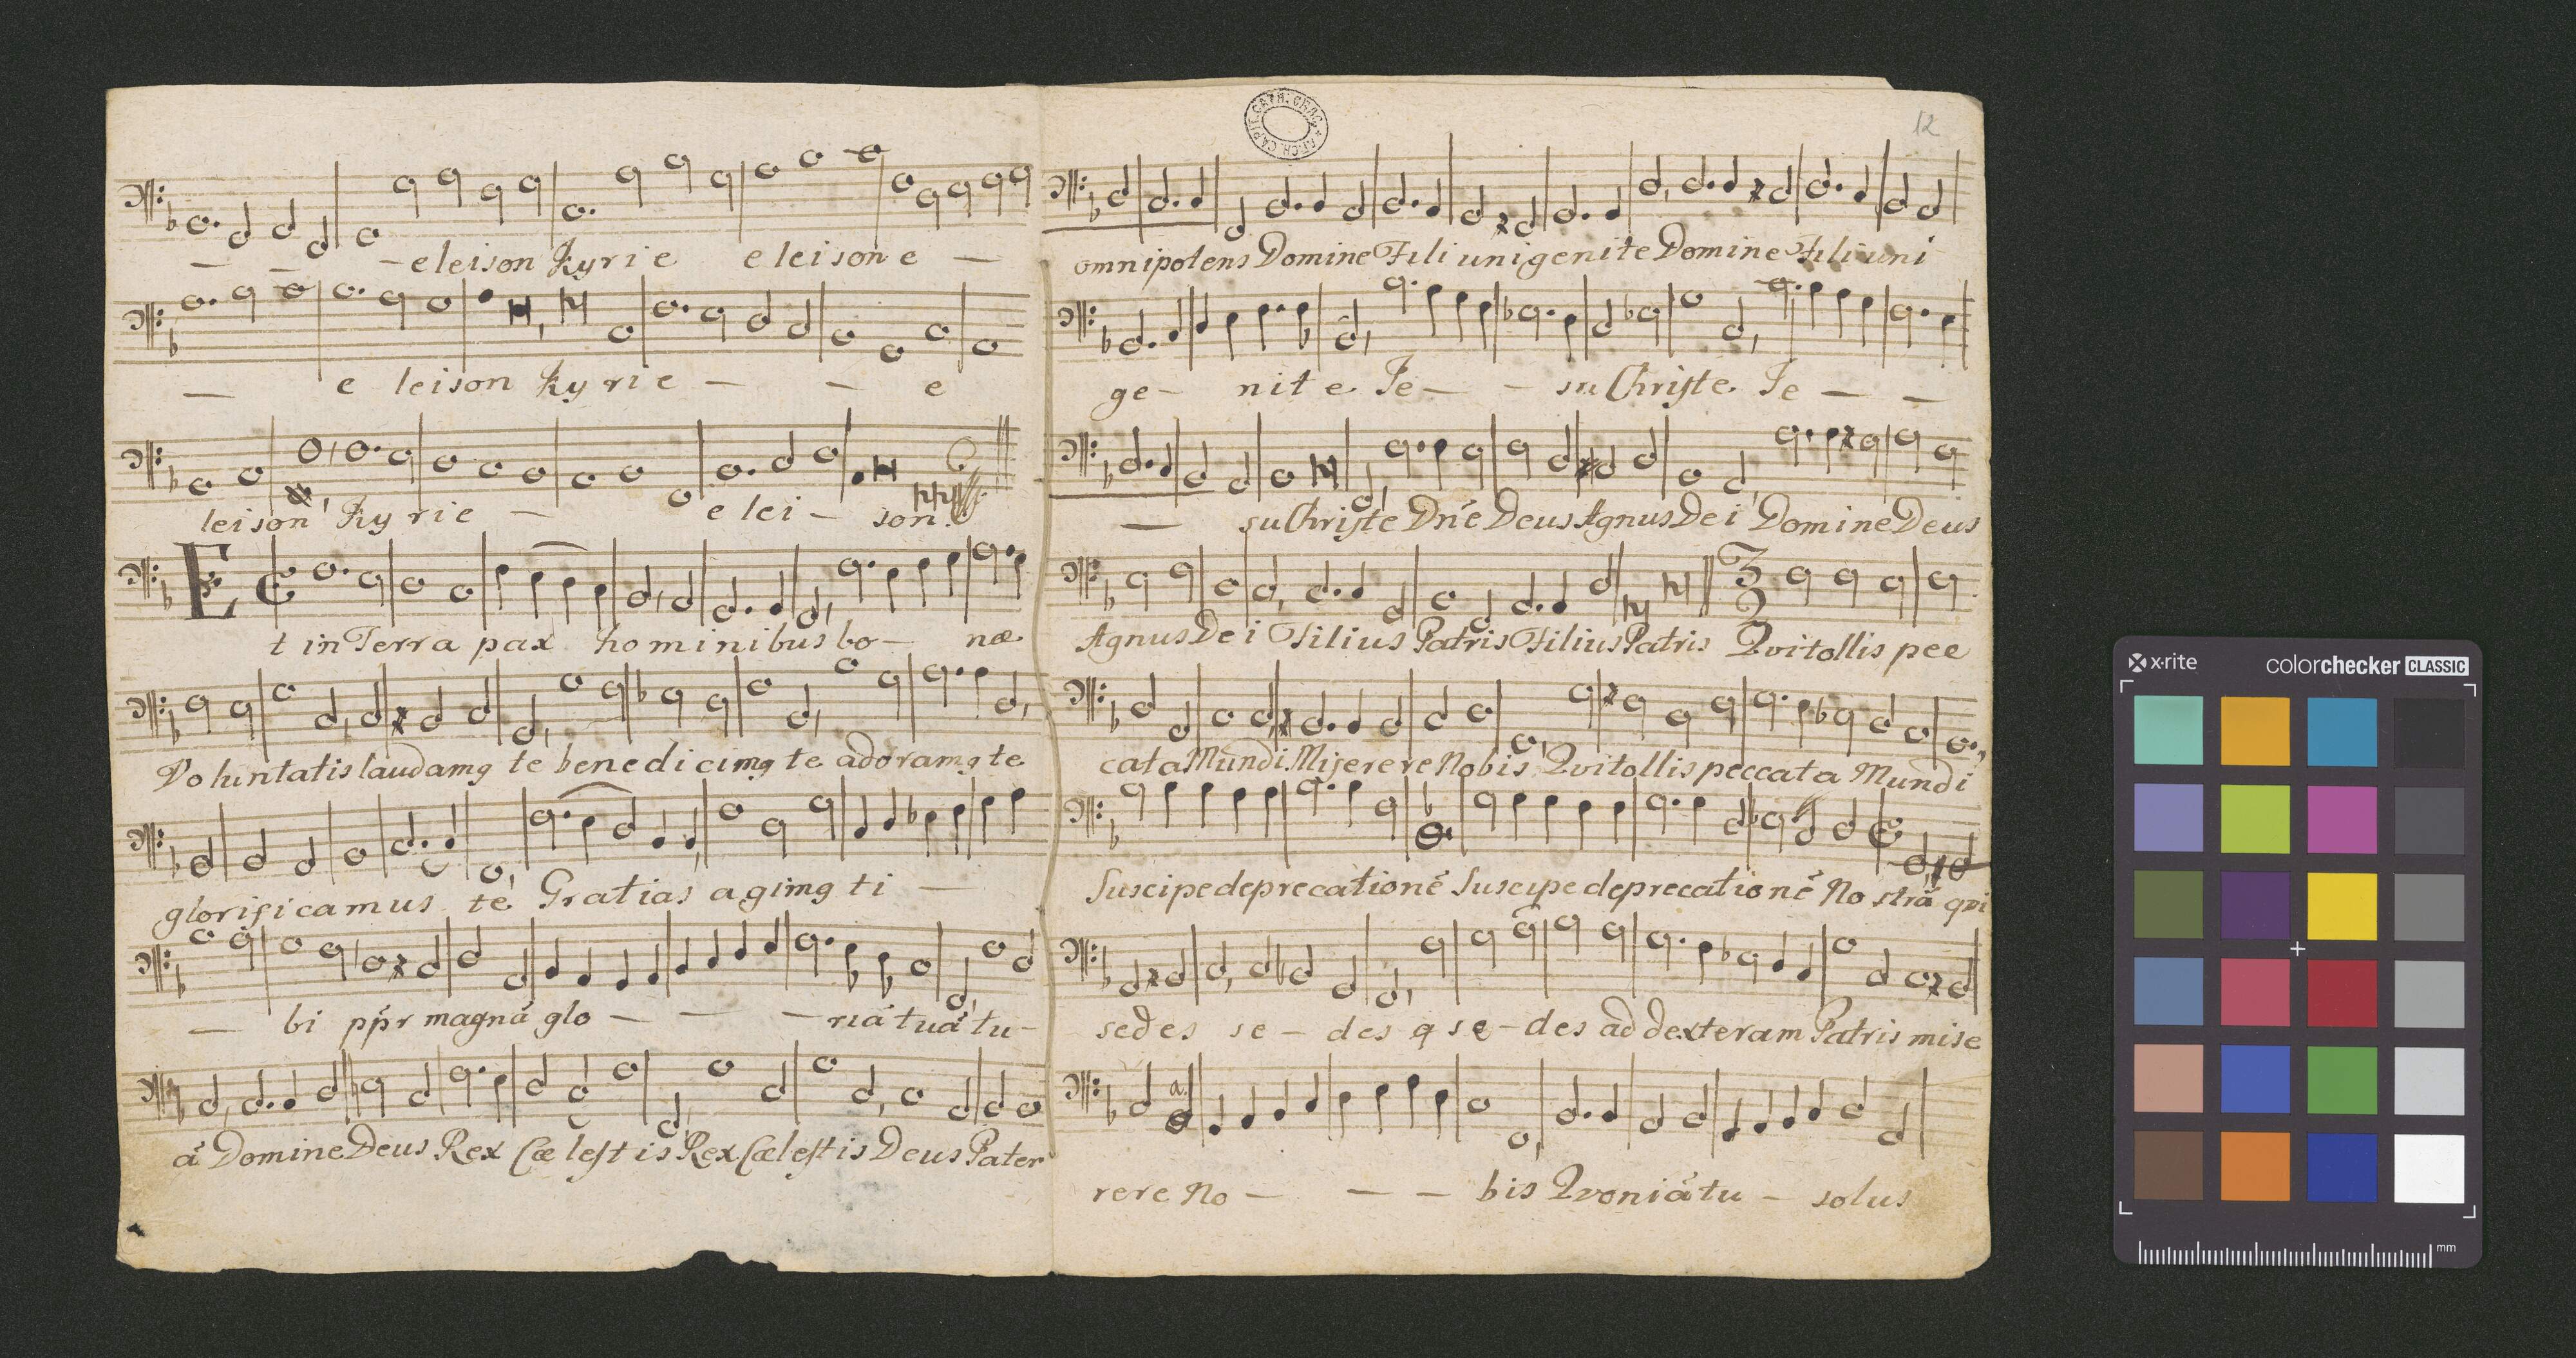 – – – eleison Kyrie eleison e –
– e leison Kyrie – – e
leison Kyrie – e lei – son.
Et in Terra pax hominibus bo – næ
Voluntatis laudamq te benedicimq te adoramq te
glorificamus te Gratias agimq ti –
– bi ppr magnã glo – – – riã tuã tu –
ã Domine Deus Rex Cælestis Rex Cælestis Deus Pater
ARCH. CAPIT. CATH. CRAC.
12
omnipotens Domine Fili unigenite Domine Fili uni
ge – nite Je – – su Christe Je – –
– su Christe Dñe Deus Agnus Dei Domine Deus
3
2
Agnus Dei Filius Patris Filius Patris Qvi tollis pec
cata Mundi Miserere Nobis Qvi tollis peccata Mundi
Suscipe deprecationẽ Suscipe deprecationẽ Nostrã qvi
sedes se – des q se – des ad dexteram Patris mise
a
rere No – – – bis Qvoniã tu – solus
x·rite
colorchecker CLASSIC
mm